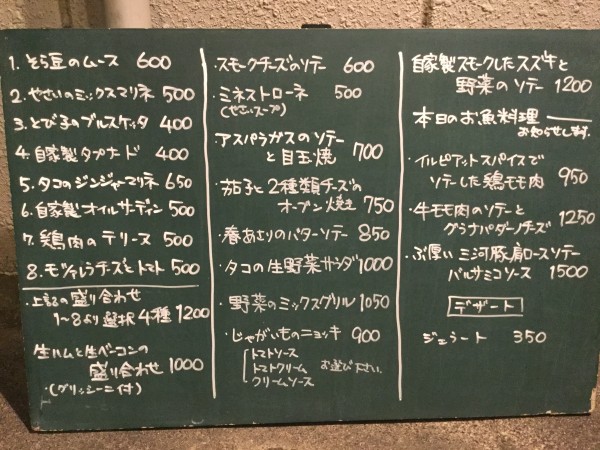 1. そら豆のムース 600
2. やさいのミックスマリネ 500
3. とび子のブルスケッタ 400
4. 自家製タプナード 400
5. タコのジンジャーマリネ 650
6. 自家製オイルサーディン 500
7. 鶏肉のテリーヌ 500
8. モッツァレラチーズとトマト 500
・上記の盛り合わせ
1〜8より選択 4種 1200
生ハムと生ベーコンの
盛り合わせ 1000
・(グリッシーニ付)
・スモークチーズのソテー 600
・ミネストローネ 500
(やさいスープ)
アスパラガスのソテー
と目玉焼 700
・茄子と2種類チーズの
オーブン焼き 750
・春あさりのバターソテー 850
・タコの生野菜サラダ 1000
・野菜のミックスグリル 1050
・じゃがいものニョッキ 900
トマトソース
トマトクリーム お選び下さい。
クリームソース
自家製スモークしたスズキと
野菜のソテー 1200
本日のお魚料理 ー
お知らせします。
・イルピアットスパイスで
ソテーした鶏モモ肉 950
・牛モモ肉のソテーと
グラナパダーノチーズ 1250
・ぶ厚い三河豚肩ロースソテー
バルサミコソース 1500
デザート
ジェラート 350